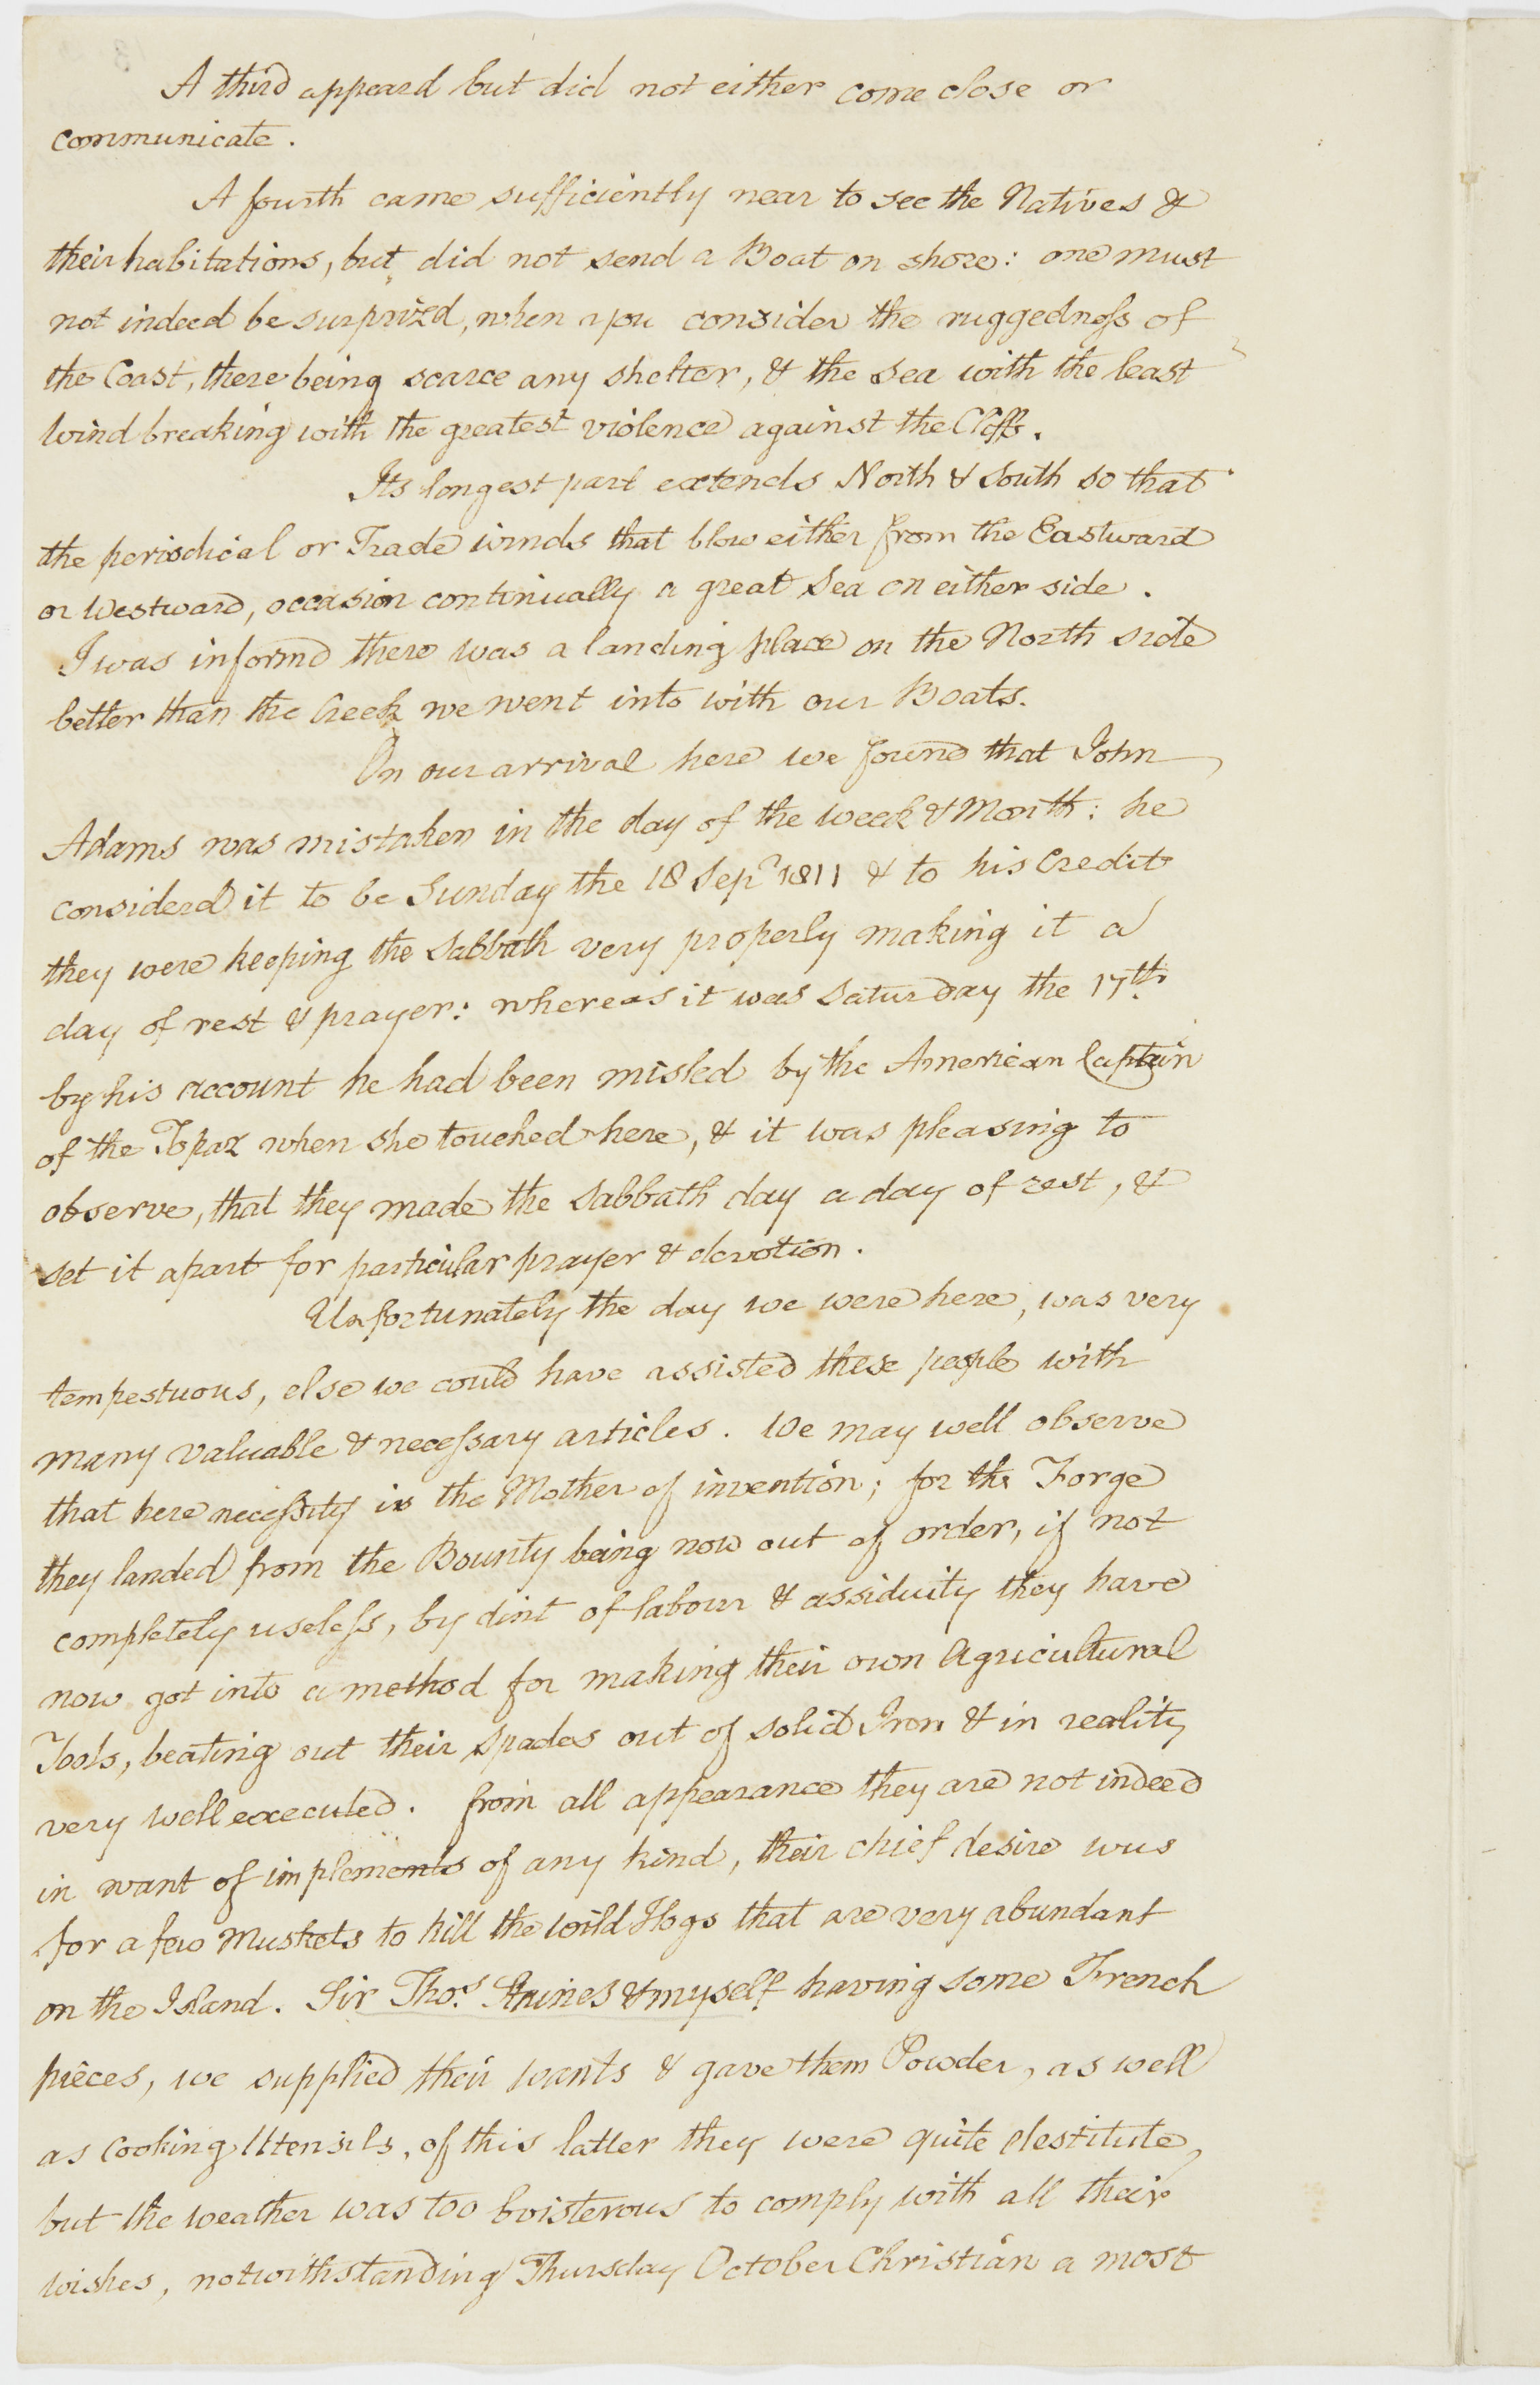 A third appeard but did not either come close or
communicate.
A fourth came sufficiently near to see the Natives &
their habitations, but did not send a Boat on shore: one must
not indeed be surprized, when you consider the ruggedness of
the Coast, there being scarce any shelter, & the Sea with the least
Wind breaking with the greatest violence against the Cliffs.
Its longest part extends North & South so that
the periodical or Trade winds that blow either from the Eastward
or Westward, occasion continually a great Sea on either side.
I was informd there was a landing place on the North side
better than the Creek we went into with our Boats.
On our arrival here we found that John
Adams was mistaken in the day of the week & Month: he
considerd it to be Sunday the 18 Sepr 1811 & to his Credit
they were keeping the Sabbath very properly making it a
day of rest & prayer: whereas it was Saturday the 17th
by his account he had been misled by the American Captain
of the Topaz when she touched here, & it was pleasing to
observe, that they made the Sabbath day a day of rest, &
set it apart for particular prayer & devotion.
Unfortunately the day we were here, was very
tempestuous, else we could have assisted these people with
many valuable & necessary articles. We may well observe
that here necessity is the Mother of invention; for the Forge
they landed from the Bounty being now out of order, if not
completely useless, by dint of labour & assiduity they have
now got into a method for making their own Agricultural
Tools, beating out their spades out of solid Iron & in reality
very well executed. from all appearance they are not indeed
in want of implements of any kind, their chief desire was
for a few Muskets to kill the wild Hogs that are very abundant
on the Island. Sir Thos. Staines & myself having some French
pieces, we supplied their wants & gave them Powder, as well
as Cooking Utensils, of this latter they were quite destitute,
but the weather was too boisterous to comply with all their
wishes, notwithstanding Thursday October Christian a most